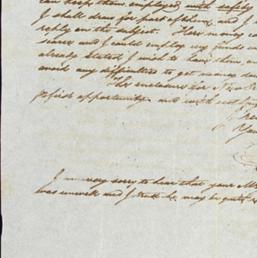 can keep them employed with safety
I shall draw for part of them, and I
reply on the subject. Here money
scarce and I could employ my funds
already stated I wish to have them
avoid any difficulties to get money
The enclosure for
opportunity and with
I am very sorry to hear that your
was unwell and I trust he may be quite